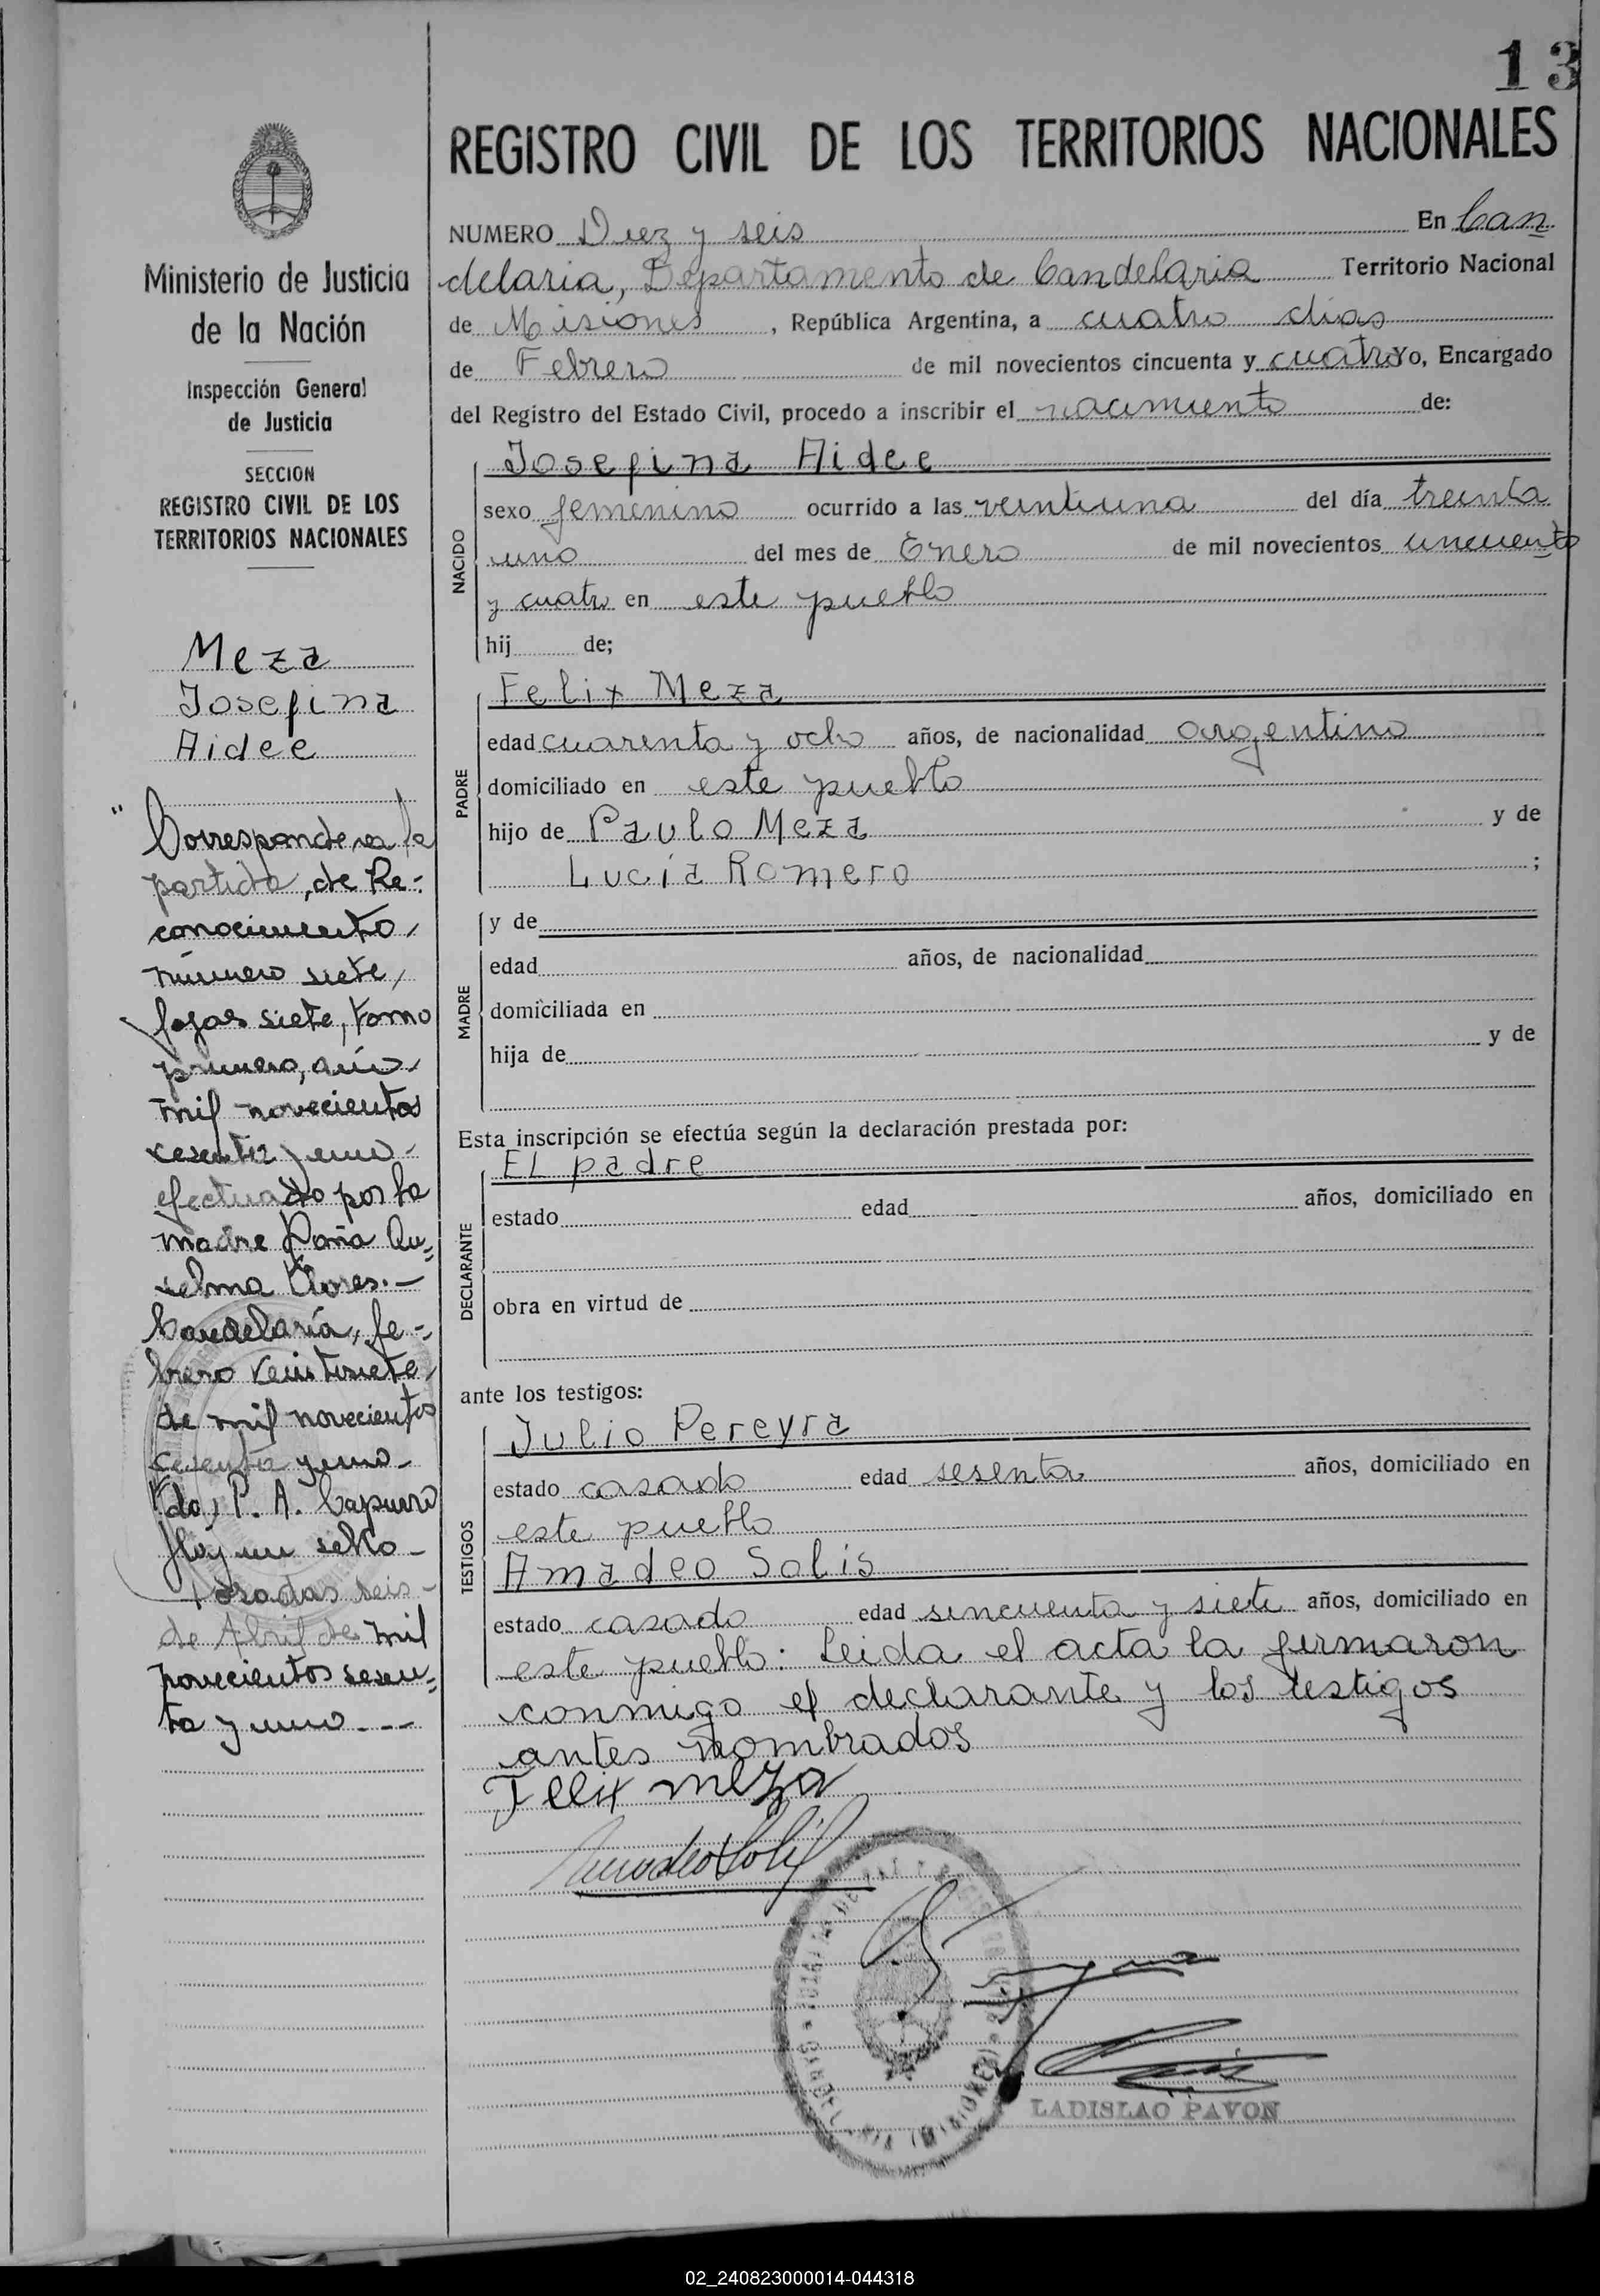 13
REGISTRO CIVIL DE LOS TERRITORIOS NACIONALES
Ministerio de Justicia
de la Nación
Inspección General
de Justicia
SECCION
REGISTRO CIVIL DE LOS
TERRITORIOS NACIONALES
Meza
Josefina
Aidee
"Corresponde a la
partida, de Re-
conocimiento,
número siete,
fojas siete, tomo
primero, año
mil novecientos
sesenta y uno-
efectuado por la
madre Doña An=
selma Flores.-
Candelaria, fe-
brero veintisiete,
de mil novecientos
sesenta y uno-
Fdo, P. A. Capurro
Hay un sello-
Posadas seis-
de Abril de mil
novecientos sesen=
ta y uno---
NUMERO Diez y seis En Can
delaria, Departamento de Candelaria Territorio Nacional
de Misiones, República Argentina, a cuatro dias
de Febrero de mil novecientos cincuenta y cuatro Yo, Encargado
del Registro del Estado Civil, procedo a inscribir el nacimiento de:
NACIDO
Josefina Aidee
sexo femenino ocurrido a las veintiuna del día treinta
uno del mes de Enero de mil novecientos cincuenta
y cuatro en este pueblo
hij de;
PADRE
Felix Meza
edad cuarenta y ocho años, de nacionalidad argentino
domiciliado en este pueblo
hijo de Paulo Meza y de
Lucía Romero ;
MADRE
y de
edad años, de nacionalidad
domiciliada en
hija de y de
Esta inscripción se efectúa según la declaración prestada por:
DECLARANTE
El padre
estado edad años, domiciliado en
obra en virtud de
ante los testigos:
TESTIGOS
Julio Pereyra
estado casado edad sesenta años, domiciliado en
este pueblo
Amadeo Solis
estado casado edad sincuenta y siete años, domiciliado en
este pueblo: Leida el acta la firmaron
conmigo el declarante y los testigos
antes nombrados
Felix meza
Amadeo Solis
LADISLAO PAVON
02_240823000014-044318